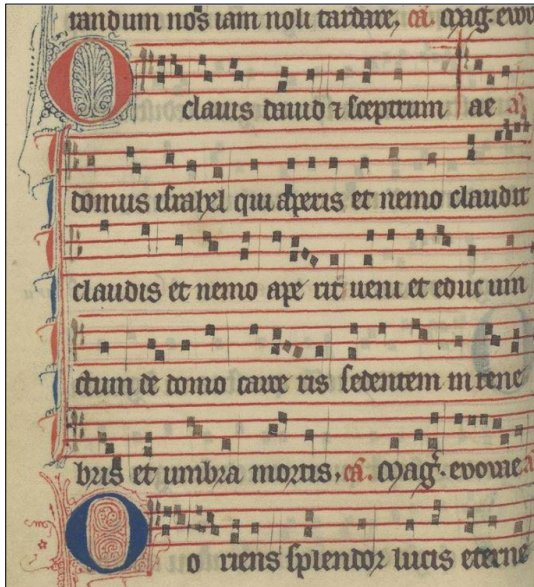 randum nos iam noli tardare. cā. Mag. evov
O clauis dauid ⁊ sceptrum ae a
domus israhel qui aperis et nemo claudit
claudis et nemo ape rit ueni et educ uin
ctum de domo carce ris sedentem in tene
bris et umbra mortis. cā. Magᵗ. evovae a
O o riens splendor lucis eterne